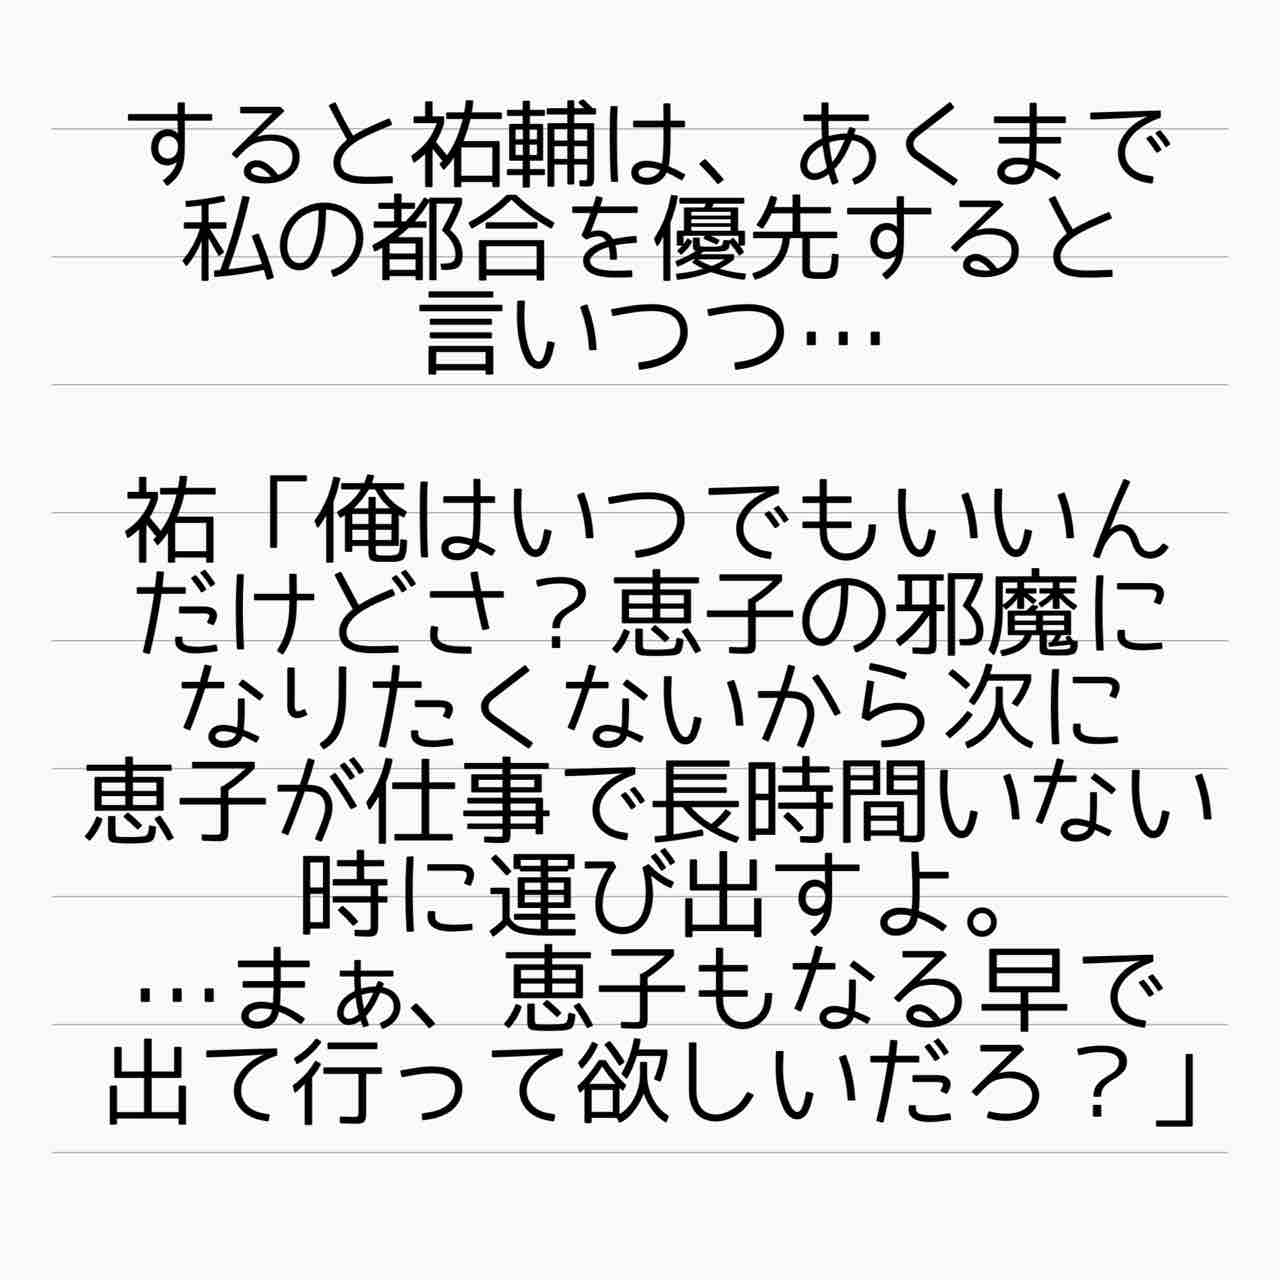 すると祐輔は、あくまで
私の都合を優先すると
言いつつ…
祐「俺はいつでもいいん
だけどさ？恵子の邪魔に
なりたくないから次に
恵子が仕事で長時間いない
時に運び出すよ。
…まぁ、恵子もなる早で
出て行って欲しいだろ？」